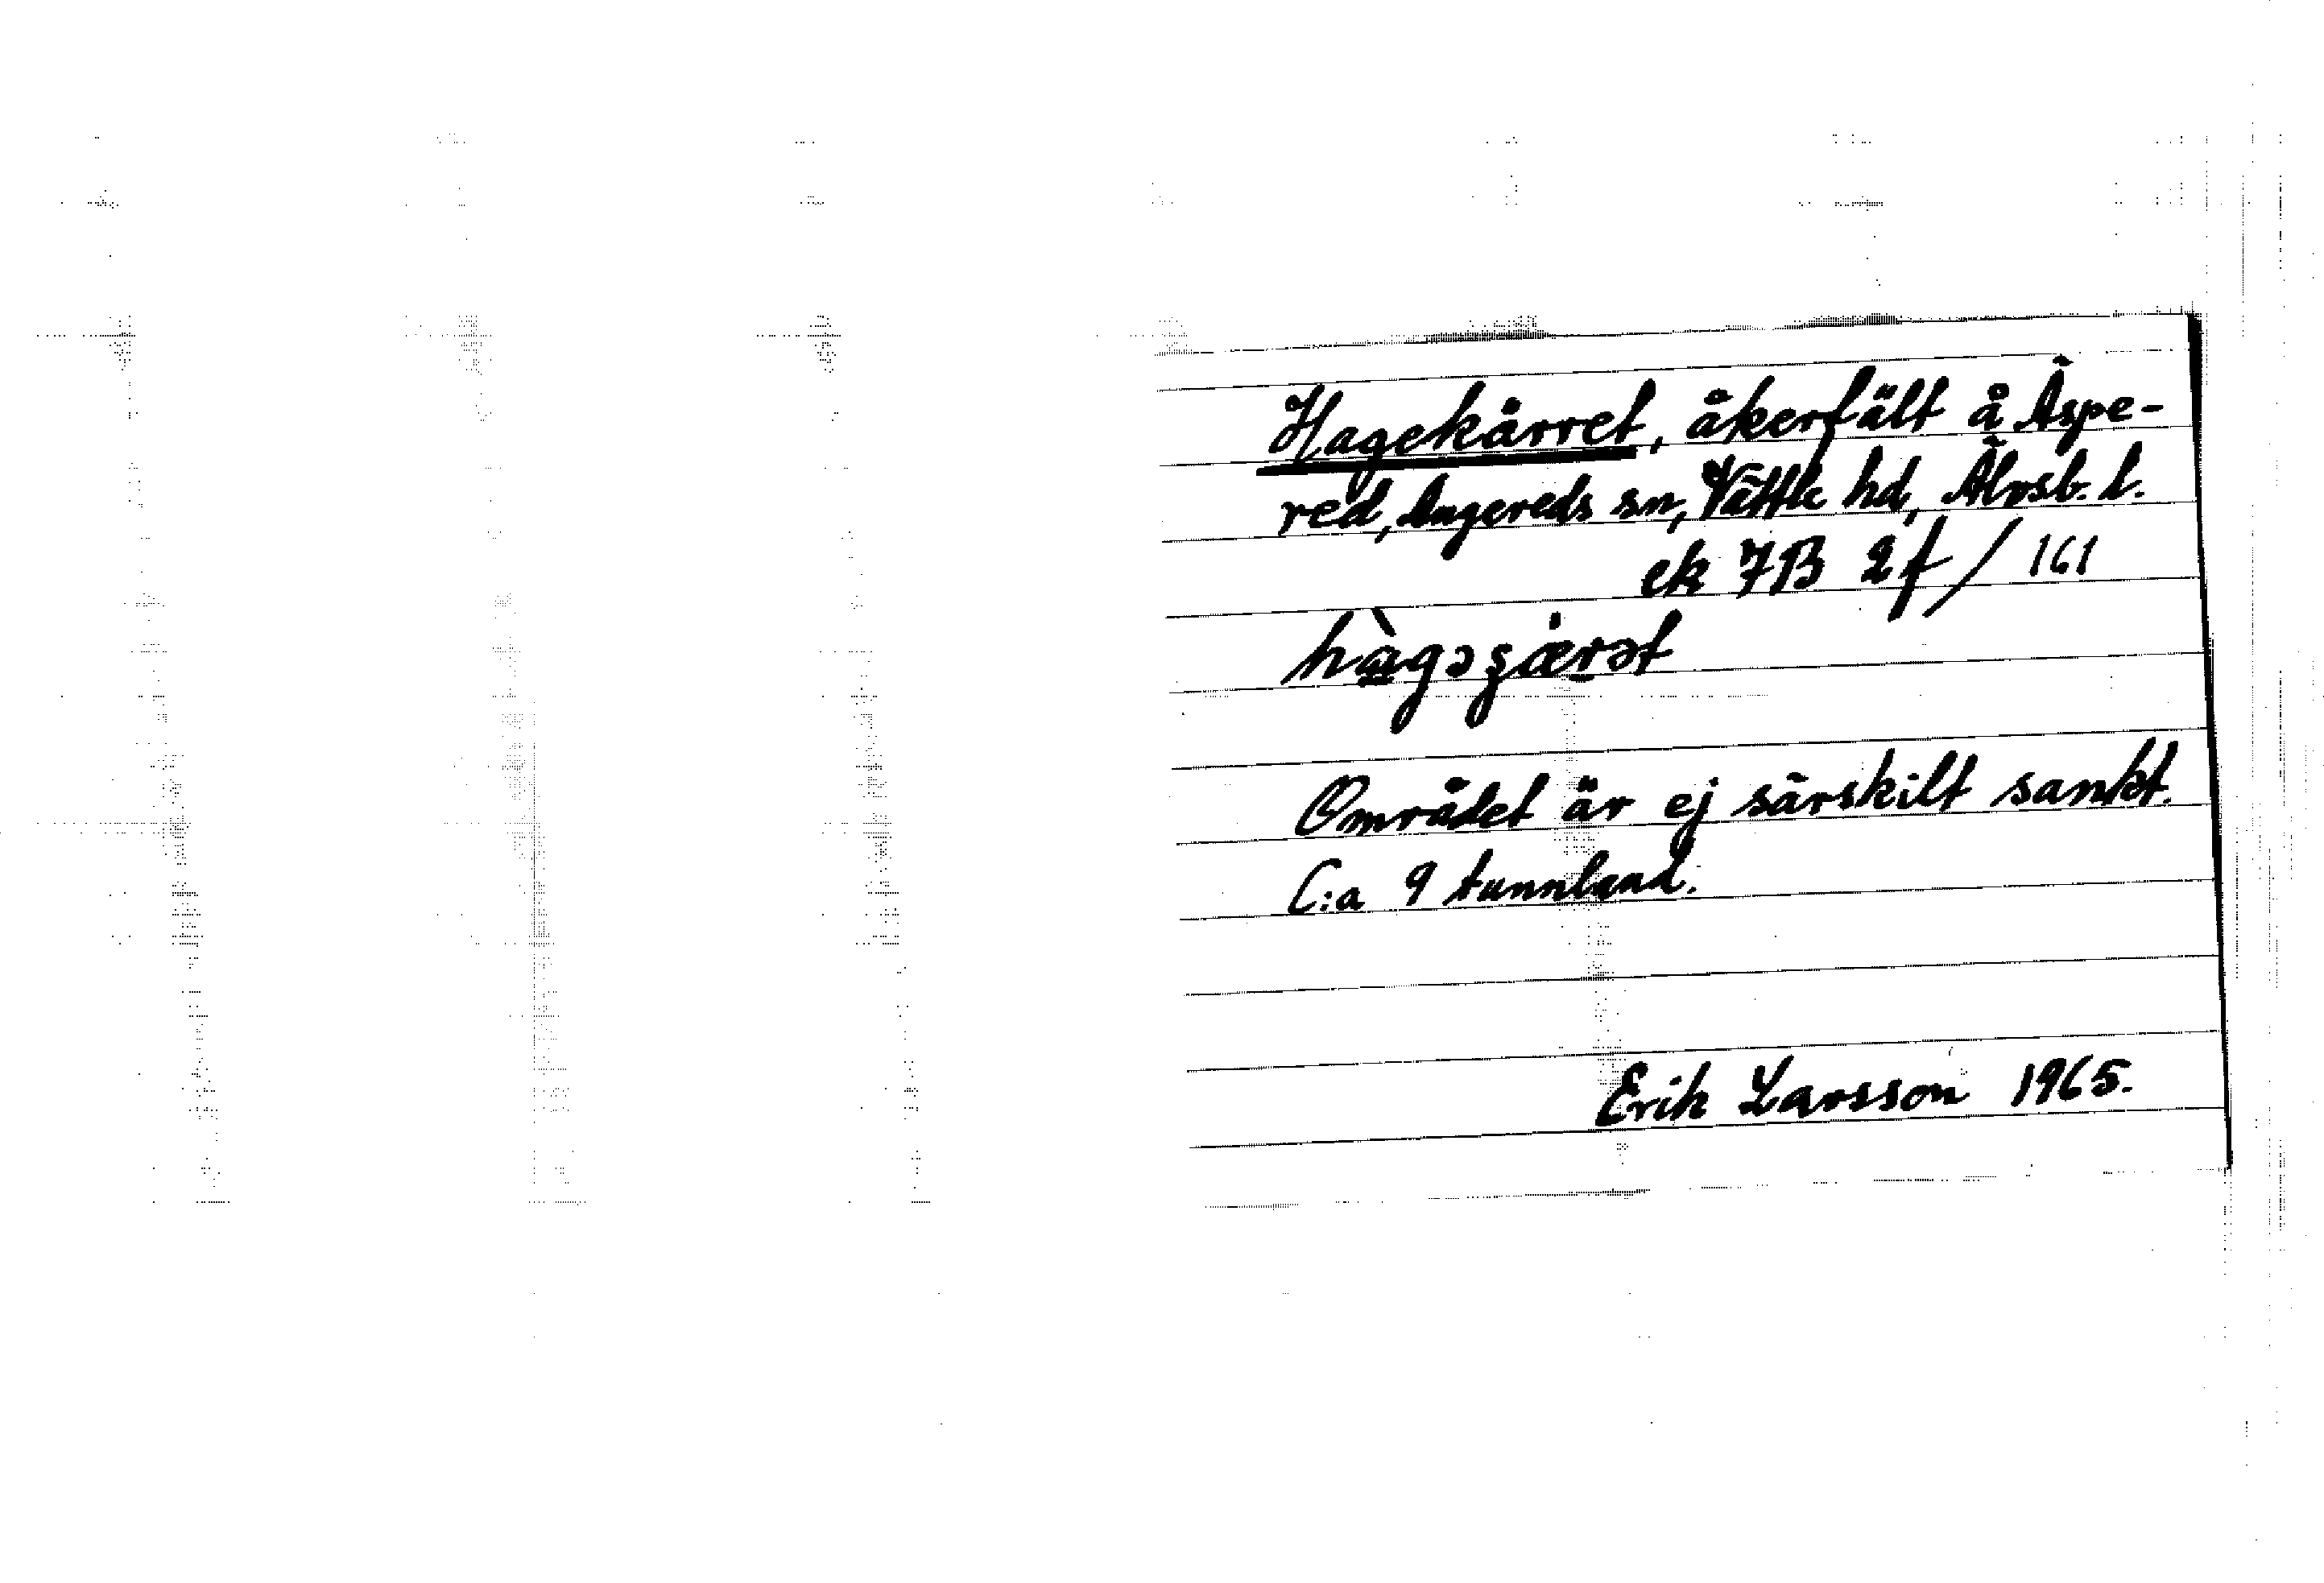 Hagekärret, åkerfält å Äspe-
red, Angereds sn, Vättle hd, Älvsb. l.
ek 7B 2f / 161
Området är ej särskilt sankt.
C:a 9 tunnland.
Erik Larsson 1965.